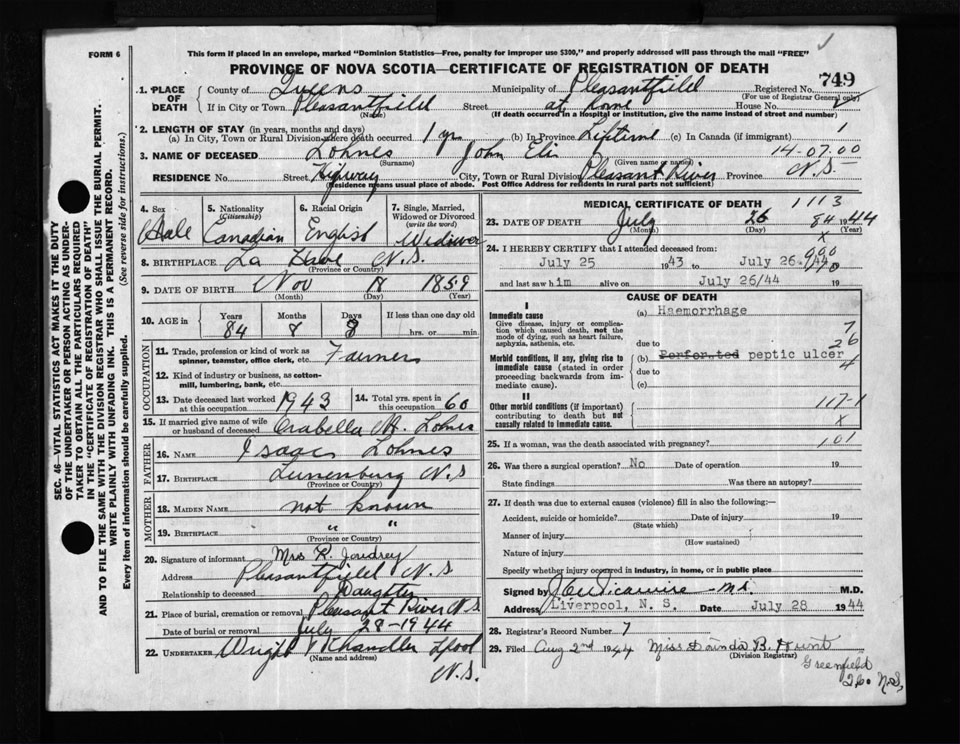 FORM 6
This form if placed in an envelope, marked "Dominion Statistics—Free, penalty for improper use $300," and properly addressed will pass through the mail "FREE"
PROVINCE OF NOVA SCOTIA—CERTIFICATE OF REGISTRATION OF DEATH
749
1. PLACE OF DEATH
County of Queens Municipality of Pleasantfield Registered No.
(For use of Registrar General only)
If in City or Town Pleasantfield Street at home House No.
(Name) (If death occurred in a hospital or institution, give the name instead of street and number)
2. LENGTH OF STAY (in years, months and days)
(a) In City, Town or Rural Division where death occurred 1 yr (b) In Province Lifetime (c) In Canada (if immigrant) 1
3. NAME OF DECEASED Lohnes John Eli 14-07.00
(Surname) (Given name or names)
RESIDENCE No. Street Highway City, Town or Rural Division Pleasant River Province N.S.
(Residence means usual place of abode. Post Office Address for residents in rural parts not sufficient)
4. Sex Male
5. Nationality (Citizenship) Canadian
6. Racial Origin English
7. Single, Married, Widowed or Divorced (write the word) Widower
8. BIRTHPLACE La Have N.S.
(Province or County)
9. DATE OF BIRTH Nov 18 1859
(Month) (Day) (Year)
10. AGE in Years Months Days If less than one day old
84 8 8 hrs. or min.
OCCUPATION
11. Trade, profession or kind of work as spinner, teamster, office clerk, etc. Farmer
12. Kind of industry or business, as cotton-mill, lumbering, bank, etc.
13. Date deceased last worked at this occupation 1943
14. Total yrs. spent in this occupation 60
15. If married give name of wife or husband of deceased Arabella M. Lohnes
FATHER
16. NAME Isaac Lohnes
17. BIRTHPLACE Lunenburg N.S
(Province or Country)
MOTHER
18. MAIDEN NAME not known
19. BIRTHPLACE " "
(Province or County)
20. Signature of informant Mrs R. Joudrey
Address Pleasantfield N.S
Relationship to deceased Daughter
21. Place of burial, cremation or removal Pleasant River N.S
Date of burial or removal July 28-1944
22. UNDERTAKER Wright Chandler Lpool
(Name and address) N.S.
MEDICAL CERTIFICATE OF DEATH 1113
23. DATE OF DEATH July 26 84 1944
(Month) (Day) (Year)
x
24. I HEREBY CERTIFY that I attended deceased from:
July 25 1943 to July 26/44
and last saw him alive on July 26/44 19
CAUSE OF DEATH
I
Immediate cause
Give disease, injury or complication which caused death, not the mode of dying, such as heart failure, asphyxia, asthenia, etc.
(a) Haemorrhage
due to
Morbid conditions, if any, giving rise to immediate cause (stated in order proceeding backwards from immediate cause).
(b) Perforated peptic ulcer
due to
(c)
7
26
4
II
Other morbid conditions (if important) contributing to death but not causally related to immediate cause.
117-1
x
25. If a woman, was the death associated with pregnancy? 101
26. Was there a surgical operation? No Date of operation 19
State findings Was there an autopsy?
27. If death was due to external causes (violence) fill in also the following:—
Accident, suicide or homicide? Date of injury 19
(State which)
Manner of injury
(How sustained)
Nature of injury
Specify whether injury occurred in industry, in home, or in public place
Signed by M.D.
Address Liverpool, N. S. Date July 28 1944
28. Registrar's Record Number 7
29. Filed Aug 2nd 1944 Miss B. Hunt
(Division Registrar)
Greenfield
N.S.
SEC. 46—VITAL STATISTICS ACT MAKES IT THE DUTY
OF THE UNDERTAKER OR PERSON ACTING AS UNDER-
TAKER TO OBTAIN ALL THE PARTICULARS REQUIRED
IN THE "CERTIFICATE OF REGISTRATION OF DEATH"
AND TO FILE THE SAME WITH THE DIVISION REGISTRAR WHO SHALL ISSUE THE BURIAL PERMIT.
WRITE PLAINLY WITH UNFADING INK. THIS IS A PERMANENT RECORD.
Every item of information should be carefully supplied. (See reverse side for instructions.)